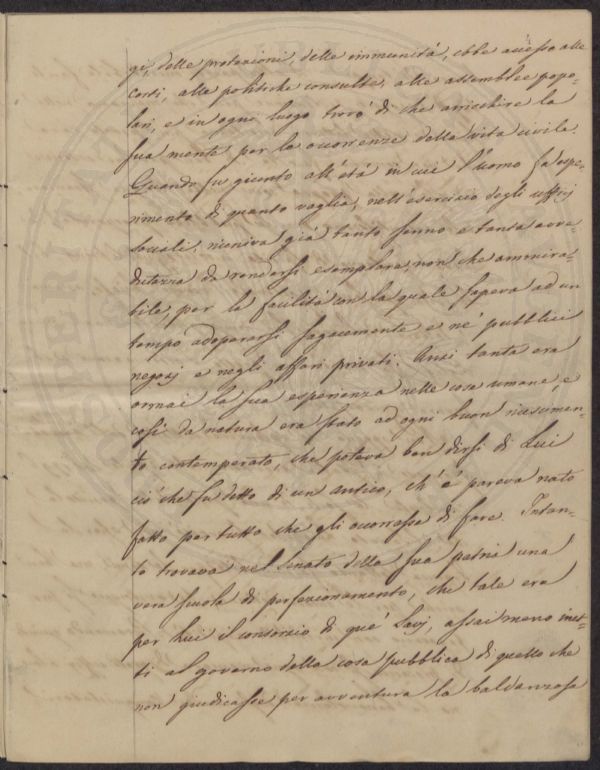 gi, delle protezioni, delle immunità, ebbe accesso alle
corti, alle politiche consulte, alle assemblee popo-
lari, e in ogni luogo trovò di che arricchire la
sua mente per le occorrenze della vita civile.
Quando fu giunto all'età in cui l'uomo fa espe-
rimento di quanto vaglia, nell'esercizio degli uffizj
sociali, riuniva già tanto senno e tanta avve-
dutezza da rendersi esemplare, non che ammira-
bile, per la facilità con la quale sapeva ad un
tempo adoperarsi sagacemente e ne' pubblici
negozj e negli affari privati. Anzi tanta era
ormai la sua esperienza nelle cose umane, e
così da natura era stato ad ogni buon riuscimen-
to contemperato, che poteva ben dirsi di Lui
ciò che fu detto di un antico, ch'e' pareva nato
fatto per tutto che gli occorresse di fare. Intan-
to trovava nel Senato della sua patria una
vera scuola di perfezionamento, che tale era
per Lui il consorzio di que' Savj, assai meno inet-
ti al governo della cosa pubblica di quello che
non giudicasse per avventura la baldanzosa